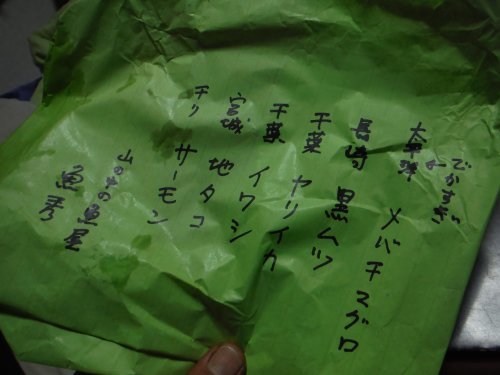 でかすぎ
太平洋 メバチマグロ
長崎 黒ムツ
千葉 ヤリイカ
千葉 イワシ
宮城 地タコ
チリ サーモン
山の中の魚屋
魚秀